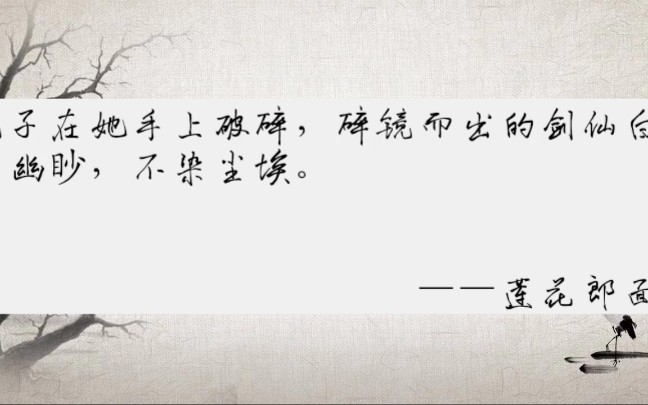 子在她手上破碎，碎镜而出的剑仙白
幽眇，不染尘埃。
——莲花郎面